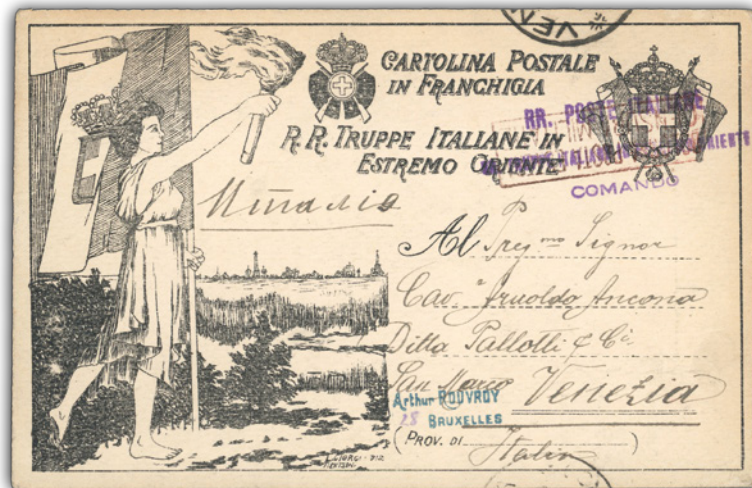 VEN
CARTOLINA POSTALE
IN FRANCHIGIA
R. R. TRUPPE ITALIANE IN
ESTREMO ORIENTE
RR. POSTE ITALIANE
COMANDO
Al Preg.mo Signor
Cav. Arnoldo Ancona
Ditta Pallotti & Ci
San Marco Venezia
Arthur RODVROY
28 BRUXELLES
(PROV. DI Italia )